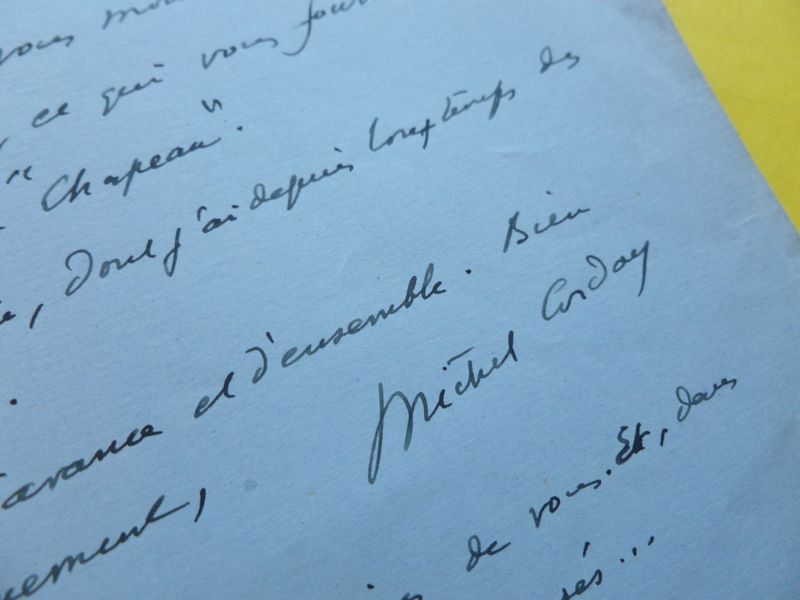 vous
, ce qui vous
"Chapeau".
, dont j'ai depuis longtemps des
avance et d'ensemble. Bien
ement,
Michel Corday
de vous. Et, dans
sés...